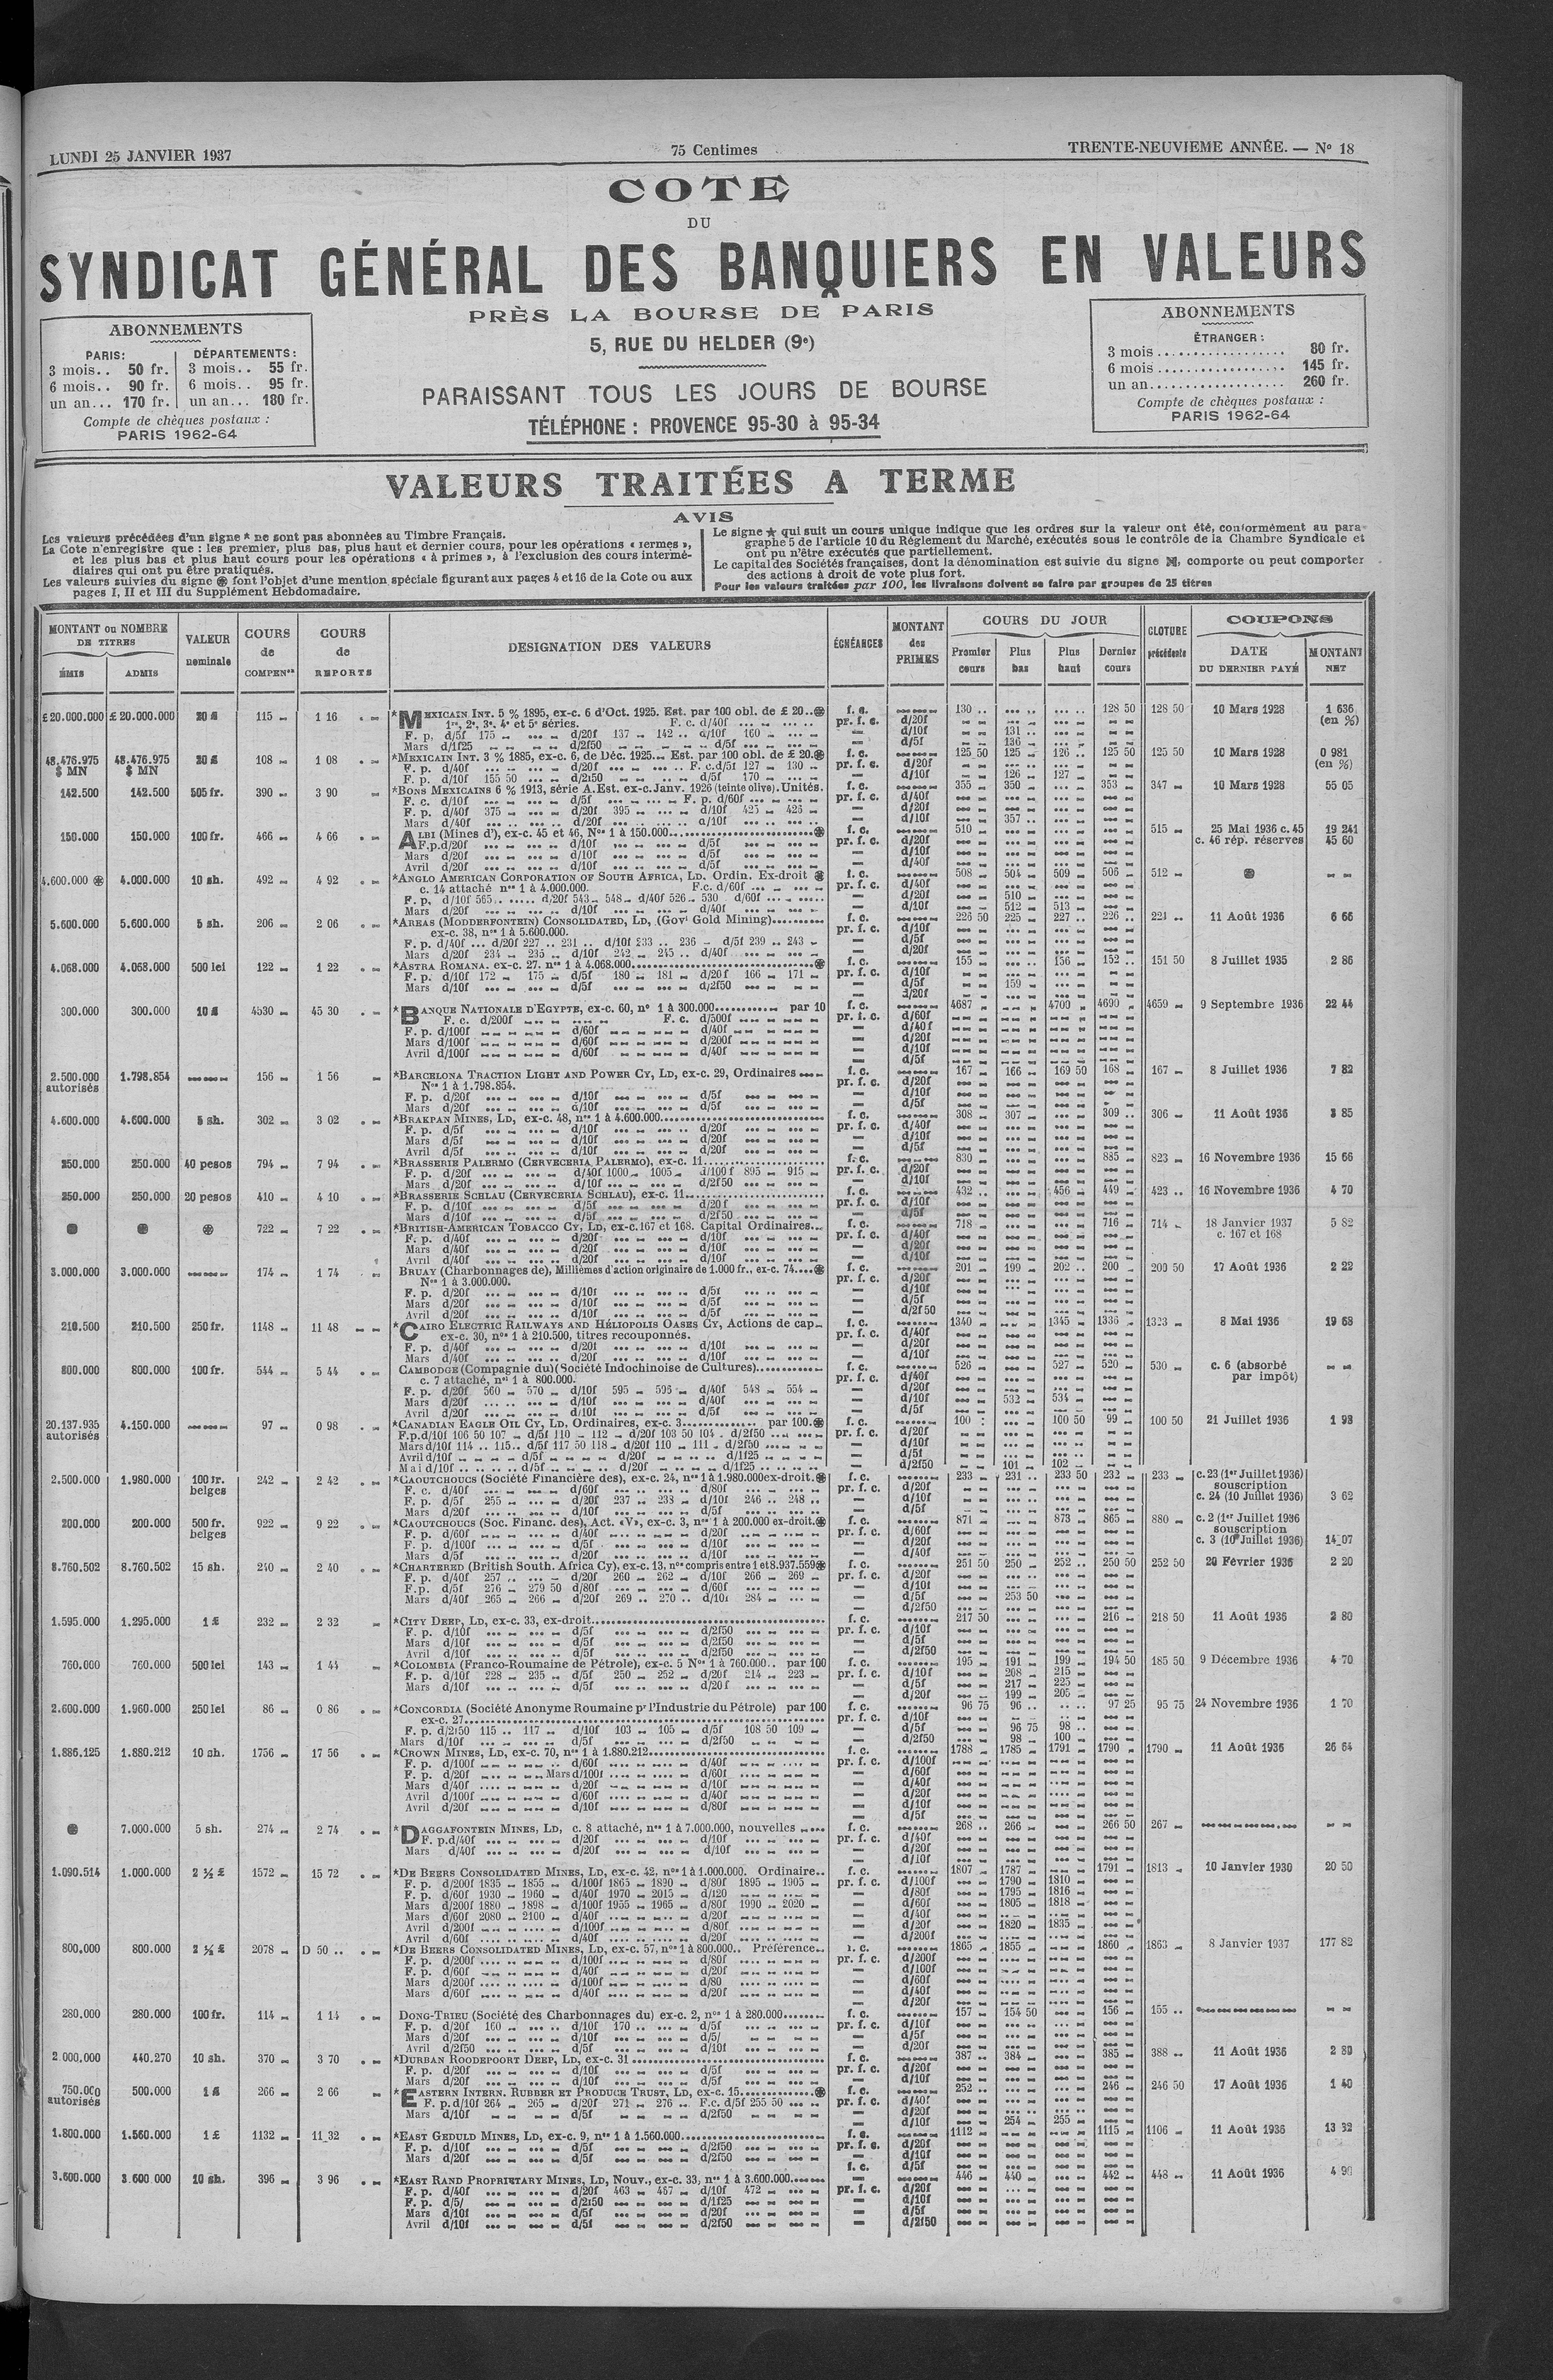 LUNDI 25 JANVIER 1937
75 Centimes
TRENTE-NEUVIEME ANNÉE. — Nº 18
COTE
DU
SYNDICAT GÉNÉRAL DES BANQUIERS EN VALEURS
PRÈS LA BOURSE DE PARIS
5, RUE DU HELDER (9e)
PARAISSANT TOUS LES JOURS DE BOURSE
TÉLÉPHONE : PROVENCE 95-30 à 95-34
ABONNEMENTS
PARIS: DÉPARTEMENTS:
3 mois.. 50 fr. 3 mois.. 55 fr.
6 mois.. 90 fr. 6 mois.. 95 fr.
un an... 170 fr. un an... 180 fr.
Compte de chèques postaux :
PARIS 1962-64
ABONNEMENTS
ÉTRANGER :
3 mois.................. 80 fr.
6 mois.................. 145 fr.
un an................... 260 fr.
Compte de chèques postaux :
PARIS 1962-64
VALEURS TRAITÉES A TERME
AVIS
Les valeurs précédées d'un signe * ne sont pas abonnées au Timbre Français.
La Cote n'enregistre que : les premier, plus bas, plus haut et dernier cours, pour les opérations « fermes »,
et les plus bas et plus haut cours pour les opérations « à primes », à l'exclusion des cours intermé-
diaires qui ont pu être pratiqués.
Les valeurs suivies du signe ⊛ font l'objet d'une mention spéciale figurant aux pages 4 et 16 de la Cote ou aux
pages I, II et III du Supplément Hebdomadaire.
Le signe ★ qui suit un cours unique indique que les ordres sur la valeur ont été, conformément au para-
graphe 5 de l'article 10 du Règlement du Marché, exécutés sous le contrôle de la Chambre Syndicale et
ont pu n'être exécutés que partiellement.
Le capital des Sociétés françaises, dont la dénomination est suivie du signe, comporte ou peut comporter
des actions à droit de vote plus fort.
Pour les valeurs traitées par 100, les livraisons doivent se faire par groupes de 25 titres
MONTANT ou NOMBRE DE TITRES
ÉMIS ADMIS
VALEUR nominale
COURS de COMPENon
COURS de REPORTS
DESIGNATION DES VALEURS
ÉCHÉANCES
MONTANT des PRIMES
COURS DU JOUR
Premier cours Plus bas Plus haut Dernier cours
CLOTURE précédente
COUPONS
DATE DU DERNIER PAYÉ
MONTANT NET
£ 20.000.000 £ 20.000.000 20 £ 115 1 16 *MEXICAIN INT. 5 % 1895, ex-c. 6 d'Oct. 1925. Est. par 100 obl. de £ 20..⊛ f. c. 130 .. 128 50 128 50 10 Mars 1928 1 636 (en %)
1re, 2e, 3e, 4e et 5e séries. F. c. d/40f
F. p. d/5f 175 d/20f 137 142 d/10f 160 d/10f 131
Mars d/1f25 d/2f50 d/5f d/5f 136
48.476.975 $ MN 48.476.975 $ MN 20 £ 108 1 08 *MEXICAIN INT. 3 % 1885, ex-c. 6, de Déc. 1925. Est. par 100 obl. de £ 20.⊛ f. c. 125 50 125 126 125 50 125 50 10 Mars 1928 0 981 (en %)
F. p. d/40f d/20f F. c. d/5f 127 130
F. p. d/10f 155 50 d/2f50 d/5f 170 d/10f 126 127
142.500 142.500 505 fr. 390 3 90 *BONS MEXICAINS 6 % 1913, série A. Est. ex-c. Janv. 1926 (teinte olive). Unités. f. c. 355 350 353 347 10 Mars 1928 55 05
F. c. d/10f d/5f F. p. d/60f
F. p. d/40f 375 d/20f 395 d/10f 425 426
Mars d/40f d/20f d/10f d/10f 357
150.000 150.000 100 fr. 466 4 66 ALBI (Mines d'), ex-c. 45 et 46, Nos 1 à 150.000 ⊛ f. c. 510 515 25 Mai 1936 c. 45 19 241
c. 46 rép. réserves 45 60
F.p. d/20f d/10f d/5f
Mars d/20f d/10f d/5f
Avril d/20f d/10f d/5f
4.600.000 ⊛ 4.000.000 10 sh. 492 4 92 *ANGLO AMERICAN CORPORATION OF SOUTH AFRICA, LD. Ordin. Ex-droit ⊛ f. c. 508 504 509 506 512 ⊛
c. 14 attaché nos 1 à 4.000.000. F.c. d/60f
F. p. d/10f 565 d/20f 543 548 d/40f 526 530 d/60f d/20f 510
Mars d/20f d/10f d/40f d/10f 512 513
5.600.000 5.600.000 5 sh. 206 2 06 *AREAS (MODDERFONTEIN) CONSOLIDATED, LD, (Govt Gold Mining) f. c. 226 50 225 227 226 221 11 Août 1936 6 66
ex-c. 38, nos 1 à 5.600.000.
F. p. d/40f d/20f 227 231 d/10f 233 236 d/5f 239 243
Mars d/20f 234 235 d/10f 242 245 d/40f
4.068.000 4.068.000 500 lei 122 1 22 *ASTRA ROMANA. ex-c. 27. nos 1 à 4.068.000 ⊛ f. c. 155 156 152 151 50 8 Juillet 1935 2 86
F. p. d/10f 172 175 d/5f 180 181 d/20f 166 171
Mars d/10f d/5f d/2f50 d/5f 159
300.000 300.000 10 £ 4530 45 30 *BANQUE NATIONALE D'EGYPTE, ex-c. 60, nº 1 à 300.000 par 10 f. c. 4687 4700 4690 4659 9 Septembre 1936 22 44
F. c. d/200f F. c. d/500f
F. p. d/100f d/60f d/40f
Mars d/100f d/60f d/200f
Avril d/100f d/60f d/40f
2.500.000 autorisés 1.798.854 156 1 56 *BARCELONA TRACTION LIGHT AND POWER CY, LD, ex-c. 29, Ordinaires f. c. 167 166 169 50 168 167 8 Juillet 1936 7 82
Nos 1 à 1.798.854.
F. p. d/20f d/10f d/5f
Mars d/20f d/10f d/5f
4.600.000 4.600.000 5 sh. 302 3 02 *BRAKPAN MINES, LD, ex-c. 48, nos 1 à 4.600.000 f. c. 308 307 309 306 11 Août 1936 8 85
F. p. d/5f d/10f d/20f
Mars d/5f d/10f d/20f
Avril d/5f d/10f d/20f
250.000 250.000 40 pesos 794 7 94 *BRASSERIE PALERMO (CERVECERIA PALERMO), ex-c. 11 f. c. 830 885 823 16 Novembre 1936 15 66
F. p. d/20f d/40f 1000 1005 d/100f 895 915
Mars d/20f d/10f d/2f50
250.000 250.000 20 pesos 410 4 10 *BRASSERIE SCHLAU (CERVECERIA SCHLAU), ex-c. 11 f. c. 432 456 449 423 16 Novembre 1936 4 70
F. p. d/10f d/5f d/20f
Mars d/10f d/5f d/2f50
⊛ ⊛ ⊛ 722 7 22 *BRITISH-AMERICAN TOBACCO CY, LD, ex-c. 167 et 168. Capital Ordinaires f. c. 718 716 714 18 Janvier 1937 5 82
c. 167 et 168
F. p. d/40f d/20f d/10f
Mars d/40f d/20f d/10f
Avril d/40f d/20f d/10f
3.000.000 3.000.000 174 1 74 BRUAY (Charbonnages de), Millièmes d'action originaire de 1.000 fr., ex-c. 74 ⊛ f. c. 201 199 202 200 200 50 17 Août 1936 2 22
Nos 1 à 3.000.000.
F. p. d/20f d/10f d/5f
Mars d/20f d/10f d/5f
Avril d/20f d/10f d/5f
210.500 210.500 250 fr. 1148 11 48 *CAIRO ELECTRIC RAILWAYS AND HÉLIOPOLIS OASES CY, Actions de cap. f. c. 1340 1345 1336 1323 8 Mai 1936 19 68
ex-c. 30, nos 1 à 210.500, titres recouponnés.
F. p. d/40f d/20f d/10f
Mars d/40f d/20f d/10f
800.000 800.000 100 fr. 544 5 44 CAMBODGE (Compagnie du) (Société Indochinoise de Cultures) f. c. 526 527 520 530 c. 6 (absorbé par impôt)
c. 7 attaché, nos 1 à 800.000.
F. p. d/20f 560 570 d/10f 595 596 d/40f 548 554
Mars d/20f d/10f d/40f d/10f 532 534
Avril d/20f d/10f d/5f
20.137.935 autorisés 4.150.000 97 0 98 *CANADIAN EAGLE OIL CY, LD, Ordinaires, ex-c. 3 par 100.⊛ f. c. 100 100 50 99 100 50 21 Juillet 1936 1 98
F.p. d/10f 106 50 107 d/5f 110 112 d/20f 103 50 104 d/2f50
Mars d/10f 114 115 d/5f 117 50 118 d/20f 110 111 d/2f50
Avril d/10f d/5f d/20f d/1f25
Mai d/10f d/5f d/20f d/1f25 d/2f50 101 102
2.500.000 1.980.000 100 fr. belges 242 2 42 *CAOUTCHOUCS (Société Financière des), ex-c. 24, nos 1 à 1.980.000 ex-droit.⊛ f. c. 233 231 233 50 232 233 c. 23 (1er Juillet 1936)
souscription
c. 24 (10 Juillet 1936) 3 62
F. c. d/40f d/60f d/80f
F. p. d/5f 255 d/20f 237 238 d/10f 246 248
Mars d/20f d/10f d/5f
200.000 200.000 500 fr. belges 922 9 22 *CAOUTCHOUCS (Soc. Financ. des), Act. «V», ex-c. 3, nos 1 à 200.000 ex-droit.⊛ f. c. 871 873 865 880 c. 2 (1er Juillet 1936
souscription
c. 3 (10 Juillet 1936) 14 07
F. p. d/60f d/40f d/20f
F. p. d/100f d/5f d/10f
Mars d/5f d/20f d/10f
8.760.502 8.760.502 15 sh. 240 2 40 *CHARTERED (British South. Africa Cy), ex-c. 13, nos compris entre 1 et 8.937.559⊛ f. c. 251 50 250 252 250 50 252 50 20 Février 1936 2 20
F. p. d/40f 257 d/20f 260 262 d/10f 266 269
F.p. d/5f 276 279 50 d/80f d/60f
Mars d/40f 265 266 d/20f 269 270 d/10f 284 d/5f 253 50
1.595.000 1.295.000 1 £ 232 2 32 *CITY DEEP, LD, ex-c. 33, ex-droit f. c. 217 50 216 218 50 11 Août 1936 2 80
F. p. d/10f d/5f d/2f50
Mars d/10f d/5f d/2f50
Avril d/10f d/5f d/2f50
760.000 760.000 500 lei 143 1 44 *COLOMBIA (Franco-Roumaine de Pétrole), ex-c. 5 Nos 1 à 760.000.. par 100 f. c. 195 191 199 194 50 185 50 9 Décembre 1936 4 70
F. p. d/10f 228 235 d/5f 250 252 d/20f 214 223 d/10f 208 215
Mars d/10f d/5f d/20f d/5f 217 225
d/20f 199 205
2.600.000 1.960.000 250 lei 86 0 86 *CONCORDIA (Société Anonyme Roumaine pr l'Industrie du Pétrole) par 100 f. c. 96 75 96 97 25 95 75 24 Novembre 1936 1 70
ex-c. 27
F. p. d/2f50 115 117 d/10f 103 105 d/5f 108 50 109 d/5f 96 75 98
Mars d/10f d/5f d/2f50 d/2f50 98 100
1.886.125 1.880.212 10 sh. 1756 17 56 *CROWN MINES, LD, ex-c. 70, nos 1 à 1.880.212 f. c. 1788 1785 1791 1790 1790 11 Août 1936 26 64
F. p. d/100f d/60f d/40f
F. p. d/20f Mars d/100f d/60f
Mars d/40f d/20f d/10f
Avril d/100f d/60f d/40f
Avril d/20f d/10f d/80f
⊛ 7.000.000 5 sh. 274 2 74 *DAGGAFONTEIN MINES, LD, c. 8 attaché, nos 1 à 7.000.000, nouvelles f. c. 268 266 266 50 267
F. p. d/40f d/20f d/10f
Mars d/40f d/20f d/10f
1.090.514 1.000.000 2 ½ £ 1572 15 72 *DE BEERS CONSOLIDATED MINES, LD, ex-c. 42, nos 1 à 1.000.000. Ordinaire.. f. c. 1807 1787 1791 1813 10 Janvier 1930 20 50
F. p. d/200f 1835 1855 d/100f 1865 1890 d/80f 1895 1905 d/100f 1790 1810
F. p. d/60f 1930 1960 d/40f 1970 2015 d/120 d/80f 1795 1816
Mars d/200f 1880 1898 d/100f 1955 1965 d/80f 1990 2020 d/60f 1805 1818
Mars d/60f 2080 2100 d/40f d/20f
Avril d/200f d/100f d/80f d/20f 1820 1835
Avril d/60f d/40f d/20f
800.000 800.000 2 ½ £ 2078 D 50 *DE BEERS CONSOLIDATED MINES, LD, ex-c. 57, nos 1 à 800.000.. Préférence.. f. c. 1865 1855 1860 1863 8 Janvier 1937 177 82
F. p. d/200f d/100f d/80f
F. p. d/60f d/40f d/20f
Mars d/200f d/100f d/80
Mars d/60f d/40f d/20f
280.000 280.000 100 fr. 114 1 14 DONG-TRIEU (Société des Charbonnages du) ex-c. 2, nos 1 à 280.000 f. c. 157 154 50 156 155
F. p. d/20f 160 d/10f 170 d/5f
Mars d/20f d/10f d/5/
Avril d/2f50 d/5f d/10f
2.000.000 440.270 10 sh. 370 3 70 *DURBAN ROODEPOORT DEEP, LD, ex-c. 31 f. c. 387 384 385 388 11 Août 1936 2 80
F. p. d/20f d/10f d/5f
Mars d/20f d/10f d/5f
750.000 autorisés 500.000 1 £ 266 2 66 *EASTERN INTERN. RUBBER ET PRODUCE TRUST, LD, ex-c. 15 ⊛ f. c. 252 246 246 50 17 Août 1936 1 40
F. p. d/10f 264 265 d/20f 271 276 F.c. d/5f 255 50
Mars d/10f d/5f d/2f50 d/10f 254 255
1.800.000 1.560.000 1 £ 1132 11 32 *EAST GEDULD MINES, LD, ex-c. 9, nos 1 à 1.560.000 f. c. 1112 1115 1106 11 Août 1936 13 32
F. p. d/10f d/5f d/2f50
Mars d/20f d/5f d/2f50
3.600.000 3.600.000 10 sh. 396 3 96 *EAST RAND PROPRIETARY MINES, LD, Nouv., ex-c. 33, nos 1 à 3.600.000 f. c. 446 440 442 448 11 Août 1936
F. p. d/40f d/20f 463 467 d/10f 472
F. p. d/5/ d/2f50 d/1f25
Mars d/10f d/5f d/20f
Avril d/10f d/5f d/2f50